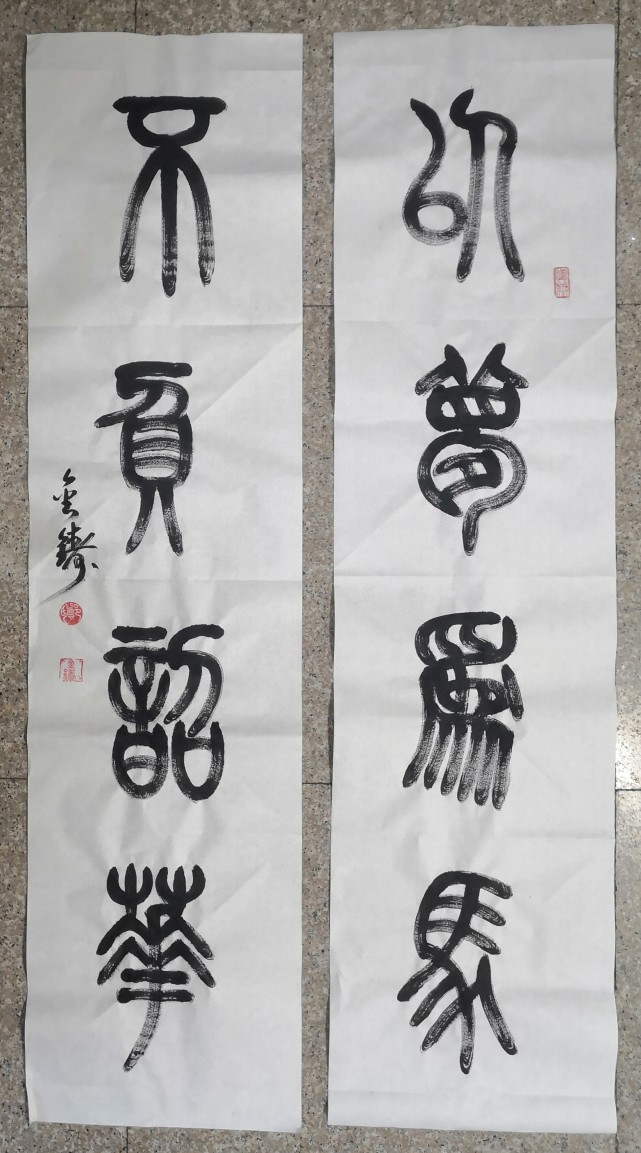 以夢爲馬
不負韶華
金鑄